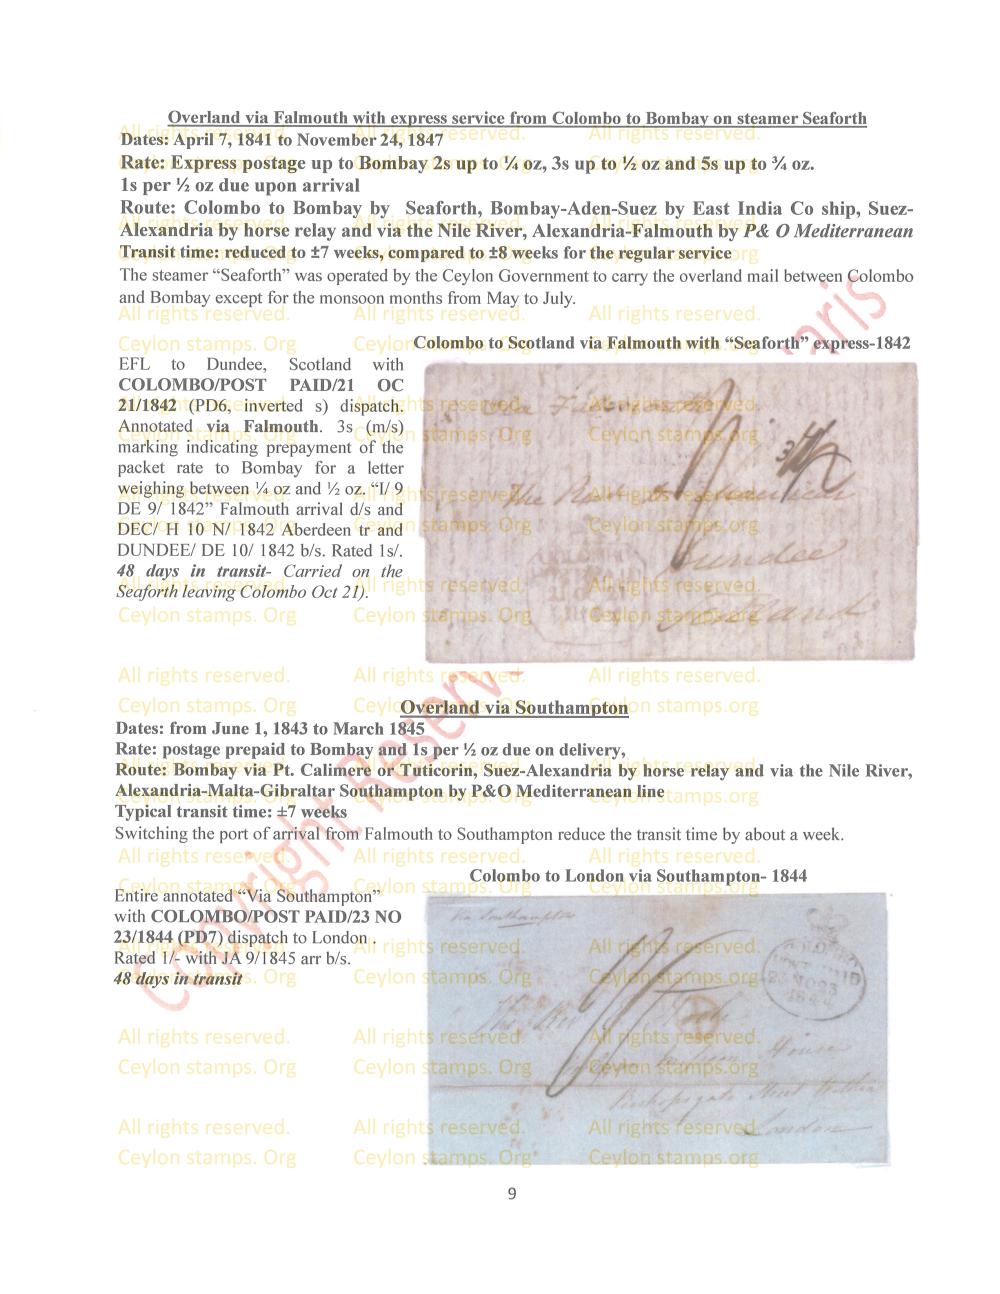 Overland via Falmouth with express service from Colombo to Bombay on steamer Seaforth
Dates: April 7, 1841 to November 24, 1847
Rate: Express postage up to Bombay 2s up to ¼ oz, 3s up to ½ oz and 5s up to ¾ oz.
1s per ½ oz due upon arrival
Route: Colombo to Bombay by Seaforth, Bombay-Aden-Suez by East India Co ship, Suez-
Alexandria by horse relay and via the Nile River, Alexandria-Falmouth by P& O Mediterranean
Transit time: reduced to ±7 weeks, compared to ±8 weeks for the regular service
The steamer “Seaforth” was operated by the Ceylon Government to carry the overland mail between Colombo
and Bombay except for the monsoon months from May to July.
Colombo to Scotland via Falmouth with “Seaforth” express-1842
EFL to Dundee, Scotland with
COLOMBO/POST PAID/21 OC
21/1842 (PD6, inverted s) dispatch.
Annotated via Falmouth. 3s (m/s)
marking indicating prepayment of the
packet rate to Bombay for a letter
weighing between ¼ oz and ½ oz. “I/ 9
DE 9/ 1842” Falmouth arrival d/s and
DEC/ H 10 N/ 1842 Aberdeen tr and
DUNDEE/ DE 10/ 1842 b/s. Rated 1s/.
48 days in transit- Carried on the
Seaforth leaving Colombo Oct 21).
Dundee
Scotland
Overland via Southampton
Dates: from June 1, 1843 to March 1845
Rate: postage prepaid to Bombay and 1s per ½ oz due on delivery,
Route: Bombay via Pt. Calimere or Tuticorin, Suez-Alexandria by horse relay and via the Nile River,
Alexandria-Malta-Gibraltar Southampton by P&O Mediterranean line
Typical transit time: ±7 weeks
Switching the port of arrival from Falmouth to Southampton reduce the transit time by about a week.
Colombo to London via Southampton- 1844
Entire annotated “Via Southampton”
with COLOMBO/POST PAID/23 NO
23/1844 (PD7) dispatch to London .
Rated 1/- with JA 9/1845 arr b/s.
48 days in transit
via Southampton
COLOMBO
POST PAID
23 NO 23
1844
House
Bishopsgate Street
London
9
All rights reserved.
Ceylon stamps. Org
Ceylon stamps.org
Copyright Reserv
aris